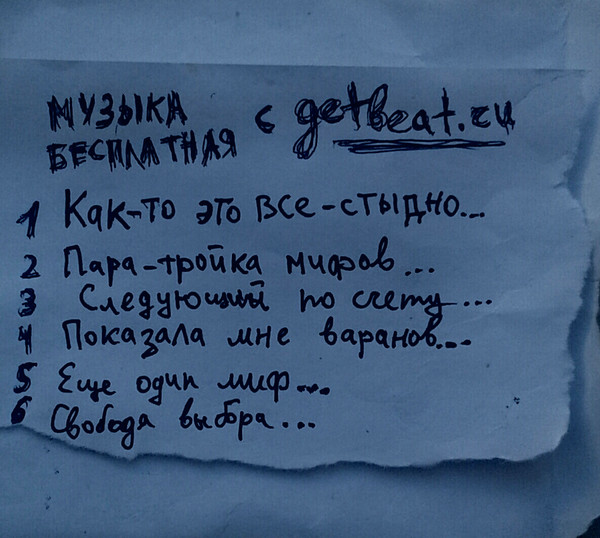 МУЗЫКА БЕСПЛАТНАЯ с getbeat.ru
1 Как-то это все-стыдно...
2 Пара-тройка мифов...
3 Следующий по счету...
4 Показала мне варанов...
5 Еще один миф...
6 Свобода выбра...